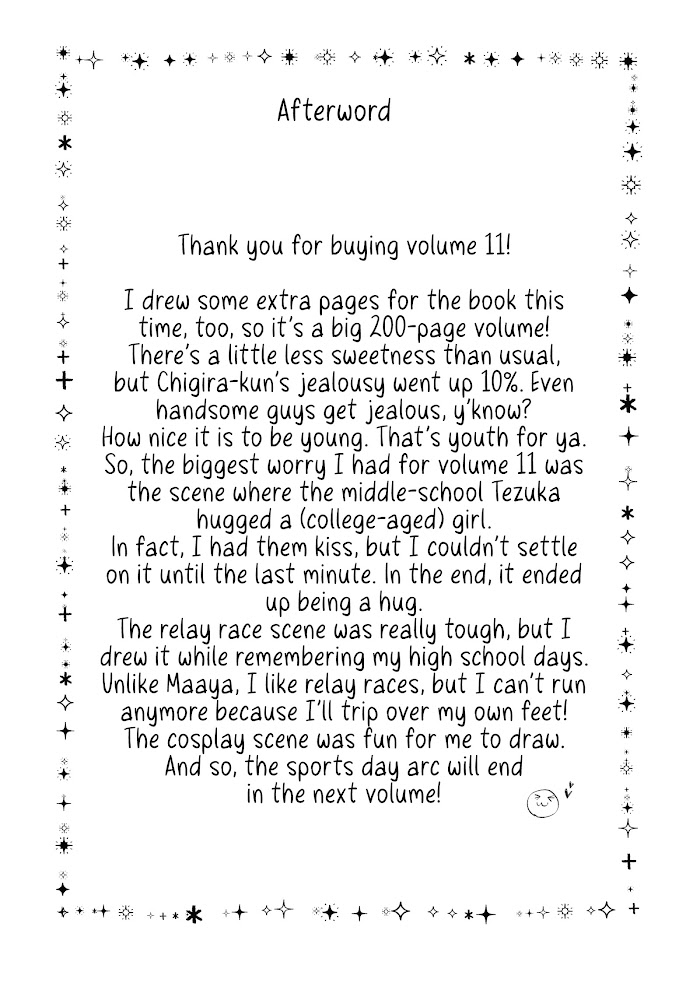 Afterword
Thank you for buying volume 11!
I drew some extra pages for the book this
time, too, so it's a big 200-page volume!
There's a little less sweetness than usual,
but Chigira-kun's jealousy went up 10%. Even
handsome guys get jealous, y'know?
How nice it is to be young. That's youth for ya.
So, the biggest worry I had for volume 11 was
the scene where the middle-school Tezuka
hugged a (college-aged) girl.
In fact, I had them kiss, but I couldn't settle
on it until the last minute. In the end, it ended
up being a hug.
The relay race scene was really tough, but I
drew it while remembering my high school days.
Unlike Maaya, I like relay races, but I can't run
anymore because I'll trip over my own feet!
The cosplay scene was fun for me to draw.
And so, the sports day arc will end
in the next volume!